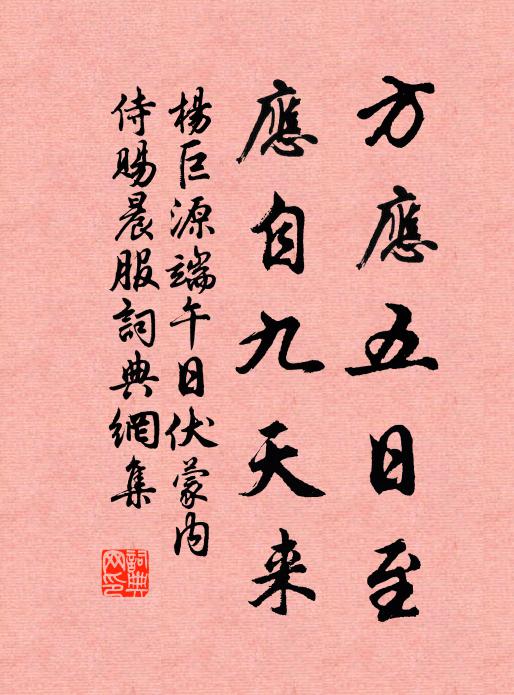 方應五日至
應自九天来
楊巨源端午日伏蒙内
侍賜晨服詞典網集
詞典
网印